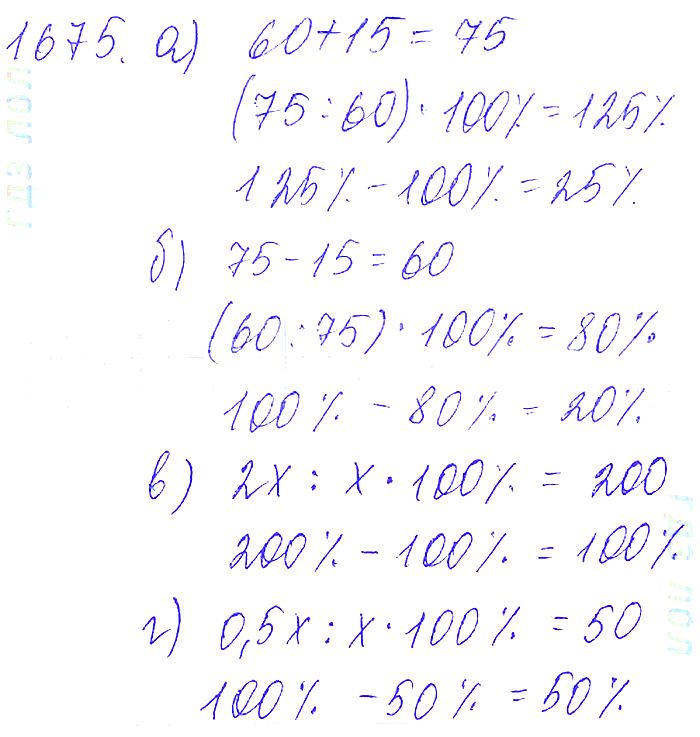 1675. а) 60+15=75
(75:60)·100%=125%
125%-100%=25%
б) 75-15=60
(60:75)·100%=80%
100%-80%=20%
в) 2x:x·100%=200
200%-100%=100%
г) 0,5x:x·100%=50
100%-50%=50%